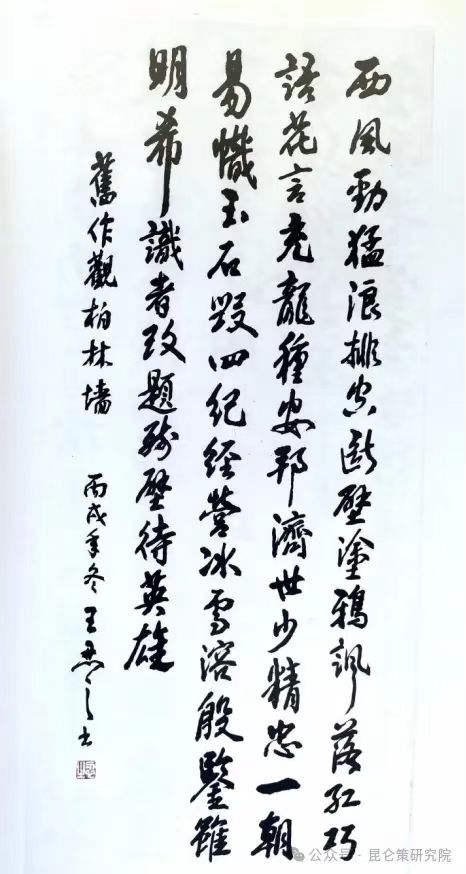 西風勁猛浪排空斷壁塗鴉諷落紅巧
語花言充龍種安邦濟世少精忠一朝
易幟玉石毀四紀經營冰雪溶殷鑒雖
明希識者題殘壁待英雄
舊作觀柏林墙 丙戌年冬 王忍之书
公众号·昆仑策研究院